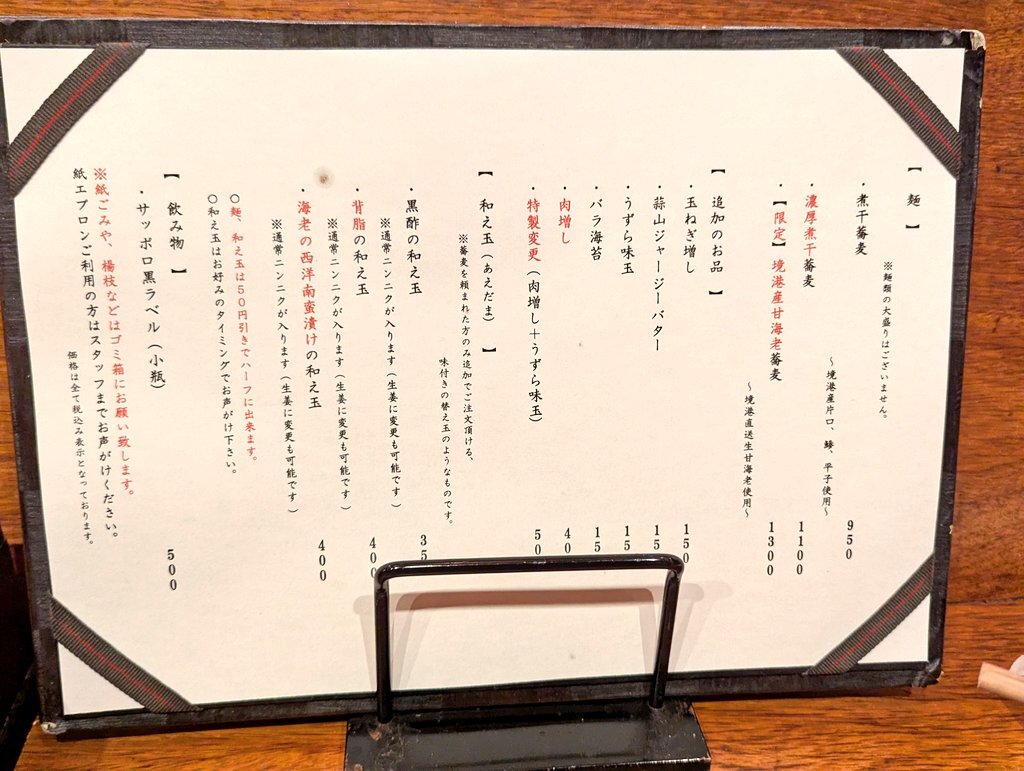 【麺】
※麺類の大盛りはございません。
・煮干蕎麦 950
～境港産片口、鯵、平子使用～
・濃厚煮干蕎麦 1100
・【限定】境港産甘海老蕎麦 1300
～境港直送生甘海老使用～
【追加のお品】
・玉ねぎ増し 150
・蒜山ジャージーバター 15
・うずら味玉 15
・バラ海苔 15
・肉増し 40
・特製変更（肉増し＋うずら味玉） 50
【和え玉（あえだま）】
※蕎麦を頼まれた方のみ追加でご注文頂ける、
味付きの替え玉のようなものです。
・黒酢の和え玉 35
※通常ニンニクが入ります（生姜に変更も可能です）
・背脂の和え玉 400
※通常ニンニクが入ります（生姜に変更も可能です）
・海老の西洋南蛮漬けの和え玉 400
※通常ニンニクが入ります（生姜に変更も可能です）
〇麺、和え玉は50円引きでハーフに出来ます。
〇和え玉はお好みのタイミングでお声がけ下さい。
【飲み物】
・サッポロ黒ラベル（小瓶） 500
※紙ごみや、楊枝などはゴミ箱にお願い致します。
紙エプロンご利用の方はスタッフまでお声がけください。
価格は全て税込み表示となっております。